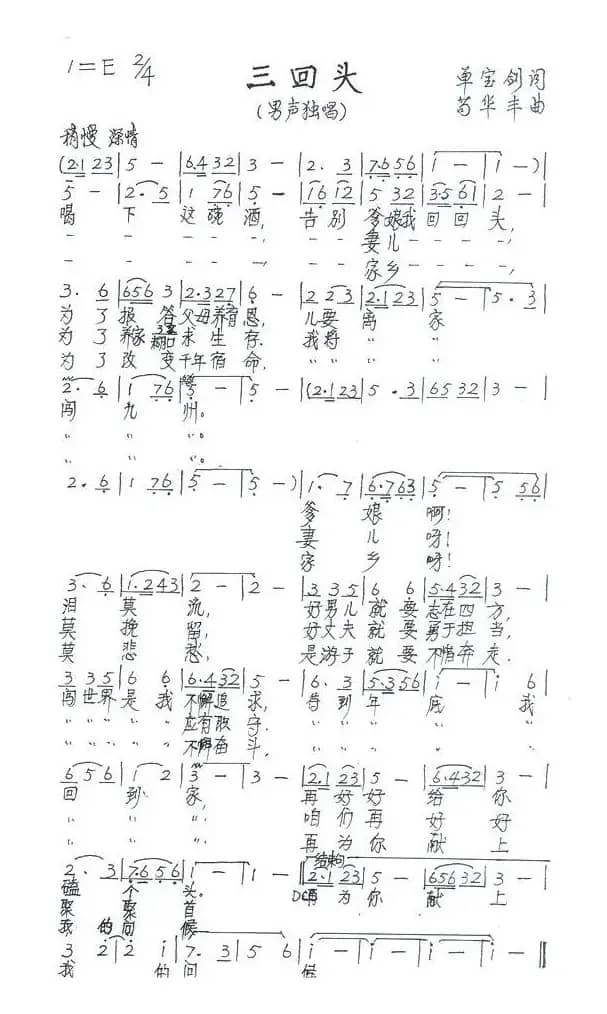 1=E 2/4
三回头
单宝剑词
(男声独唱)
苟华丰曲
稍慢 深情
(2·1 23|5 -|6·4 32|3 -|2· 3|7·6 56|i -|i -)|
5 -|2· 5|1 76|5 -|16 12|5 32|3·5 61|2 -|
喝下这碗酒,告别爹娘我回回头,
- - - - -, - - 妻儿 - - - -,
- - - - -, - - 家乡 - - - -,
3· 6|656 3|2·3 27|6 -|2 23|2·1 23|5 -|5· 3|
为了报答父母养育恩,儿要离家
为了养家糊口求生存.我将 " "
为了改变千年宿命. " " " "
2· 6|1 76|5 -|5 -|(2·1 23|5· 3|65 32|5 -|
闯九州。
" " "。
" " "。
2· 6|1 76|5 -|5 -)|1· 7|6·7 63|5 -|5 56|
爹娘啊!
妻儿呀!
家乡呀!
3· 6|1·2 43|2 -|2 -|3 35|6 6|5·4 32|3 -|
泪莫流,好男儿就要志在四方,
莫挽留,好丈夫就要勇于担当,
莫悲愁,是游子就要不怕奔走.
3 35|6 6|6·4 32|5 -|6· 3|5·3 56|i -|i 6|
闯世界是我不懈追求,待到年底我
" " " " " 应有职守. " " " " "
" " " " " 不懈奋斗, " " " " "
6 56|i 2|3 -|3 -|2·1 23|5 -|6·4 32|3 -|
回到家,再好好给你
" " ".咱们再好好
" " ".再为你献上
2· 3|7·6 56|i -|i -|2·1 23|5 -|656 32|3 -|
结束句
磕个头。D.C.再为你献上
聚聚首
我的问候
3 2|2 i|7· 3|5 6|i -|i -|i -|i -‖
我的问候